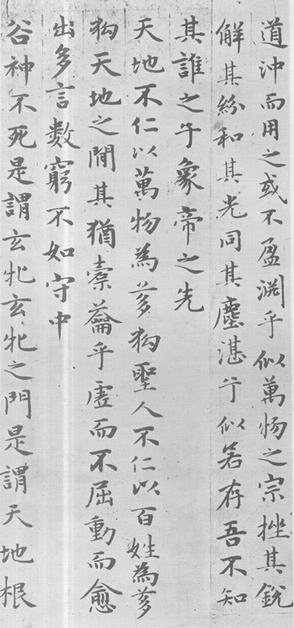 道沖而用之或不盈渊乎似萬物之宗挫其銳
解其紛和其光同其塵湛兮似若存吾不知
其誰之子象帝之先
天地不仁以萬物為芻狗聖人不仁以百姓為芻
狗天地之間其猶橐籥乎虛而不屈動而愈
出多言數窮不如守中
谷神不死是謂玄牝玄牝之門是謂天地根